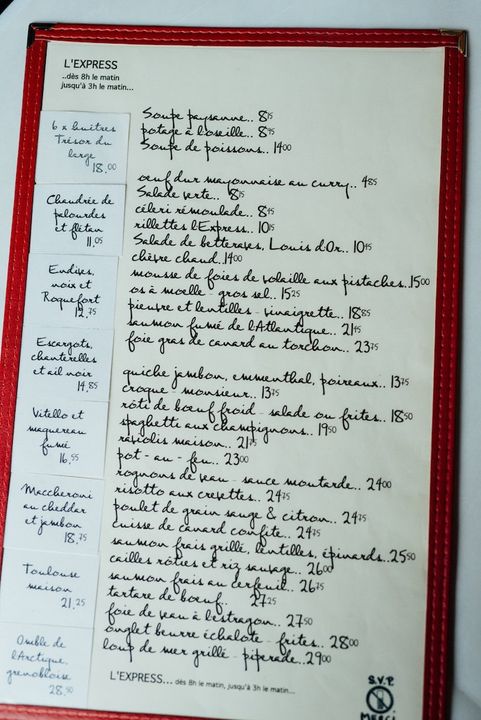 L'EXPRESS
..dès 8h le matin
jusqu'à 3h le matin...
6 x huîtres
Trésor du
large
18.00
Chaudrée de
palourdes
et flétan
11.05
Endives,
noix et
Roquefort
12.75
Escargots,
chanterelles
et ail noir
14.85
Vitello et
maquereau
fumé
16.55
Maccheroni
au cheddar
et jambon
18.75
Toulouse
maison
21.25
Omble de
l'Arctique,
grenobloise
28.50
Soupe paysanne.. 8 15
potage à l'oseille.. 8 45
Soupe de poissons.. 14 00
oeuf dur mayonnaise au curry.. 4 85
Salade verte.. 8 15
céleri rémoulade.. 8 45
rillettes l'Express.. 10 15
Salade de betteraves, Louis d'Or.. 10 45
chèvre chaud. 14 00
mousse de foies de volaille aux pistaches.. 15 00
os à moelle - gros sel.. 15 25
pieuvre et lentilles - vinaigrette.. 18 85
saumon fumé de l'Atlantique.. 21 45
foie gras de canard au torchon.. 23 75
quiche jambon, emmenthal, poireaux.. 13 75
croque - monsieur.. 13 75
rôti de boeuf froid - salade ou frites.. 18 50
spaghetti aux champignons.. 19 50
raviolis maison.. 21 75
pot - au - feu.. 23 00
rognons de veau - sauce moutarde.. 24 00
risotto aux crevettes.. 24 75
poulet de grain sauge & citron.. 24 75
cuisse de canard confite.. 24 75
saumon frais grillé, lentilles, épinards.. 25 50
cailles rôties et riz sauvage.. 26 00
saumon frais au cerfeuil.. 26 75
tartare de boeuf.. 27 25
foie de veau à l'estragon.. 27 50
onglet beurre échalote - frites.. 28 00
loup de mer grillé - piperade.. 29 00
L'EXPRESS... dès 8h le matin, jusqu'à 3h le matin...
S.V.P.
Merci